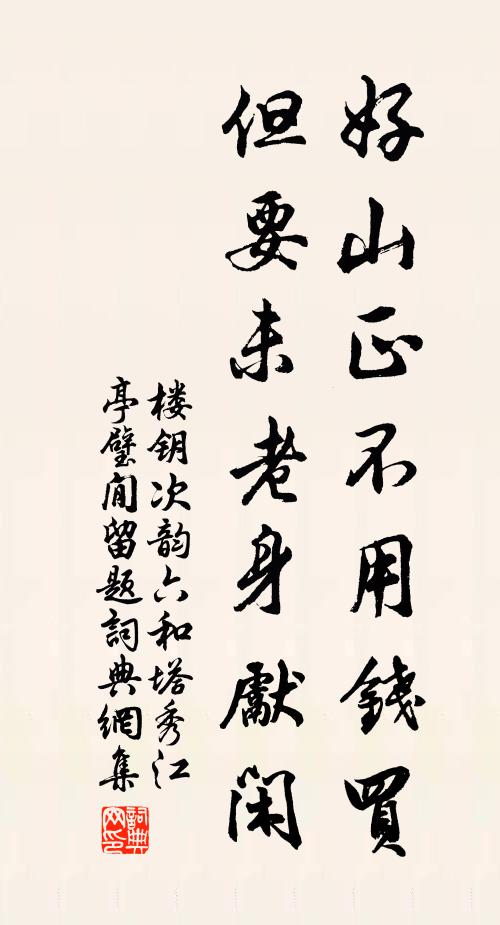 好山正不用錢買
但要未老身獻閑
楼钥次韵六和塔秀江
亭壁间留题詞典網集
詞典
网印